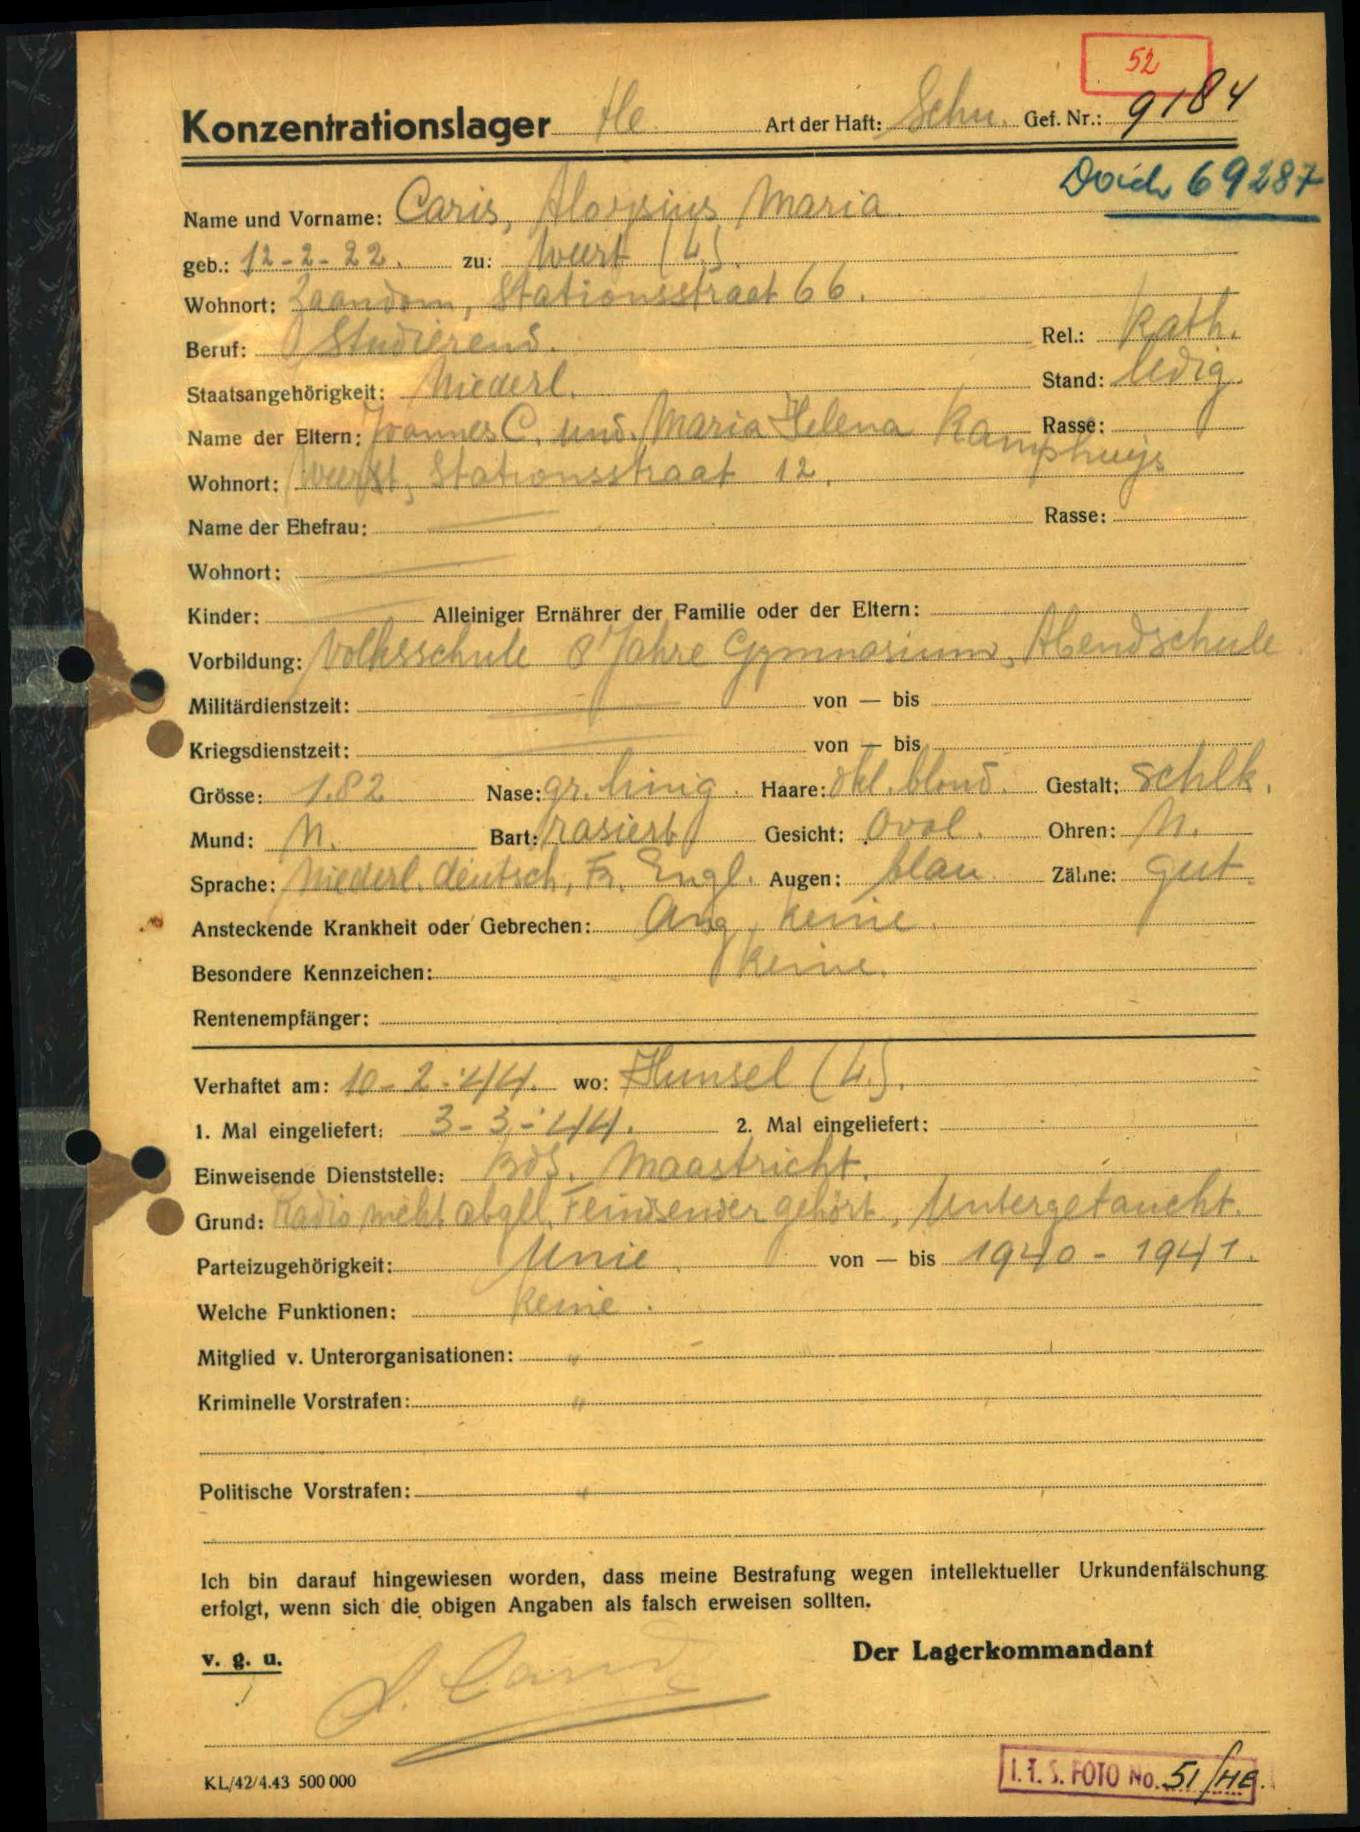 52
Konzentrationslager He Art der Haft: Schu. Gef. Nr.: 9184
69287
Name und Vorname: Caris, Aloysius Maria
geb.: 12-2-22. zu: Weert (L).
Wohnort: Zaandam, Stationsstraat 66.
Beruf: Studierend. Rel.: Kath.
Staatsangehörigkeit: Niederl. Stand: ledig.
Name der Eltern: Joannes C. und. Maria Helena Kamphuijs Rasse:
Wohnort: Weert, Stationsstraat 12.
Name der Ehefrau: Rasse:
Wohnort:
Kinder: Alleiniger Ernährer der Familie oder der Eltern:
Vorbildung: Volksschule 8 Jahre Gymnasium, Abendschule
Militärdienstzeit: von — bis
Kriegsdienstzeit: von — bis
Grösse: 1.82 Nase: gr. linig. Haare: dkl. blond. Gestalt: Schlk.
Mund: N. Bart: rasiert Gesicht: Oval. Ohren: N.
Sprache: Niederl. deutsch, Fr. Engl. Augen: blau Zähne: gut.
Ansteckende Krankheit oder Gebrechen: Ang. keine.
Besondere Kennzeichen: keine.
Rentenempfänger:
Verhaftet am: 10-2-'44. wo: Hunsel (L).
1. Mal eingeliefert: 3-3-'44. 2. Mal eingeliefert:
Einweisende Dienststelle: BdS. Maastricht.
Grund: Radio nicht abgel. Feindsender gehört, Untergetaucht.
Parteizugehörigkeit: Unie. von — bis 1940 - 1941.
Welche Funktionen: keine.
Mitglied v. Unterorganisationen: "
Kriminelle Vorstrafen: "
Politische Vorstrafen: "
Ich bin darauf hingewiesen worden, dass meine Bestrafung wegen intellektueller Urkundenfälschung
erfolgt, wenn sich die obigen Angaben als falsch erweisen sollten.
v. g. u. Der Lagerkommandant
A. Caris
KL/42/4.43 500 000
I.T.S. FOTO No. 51/HE.